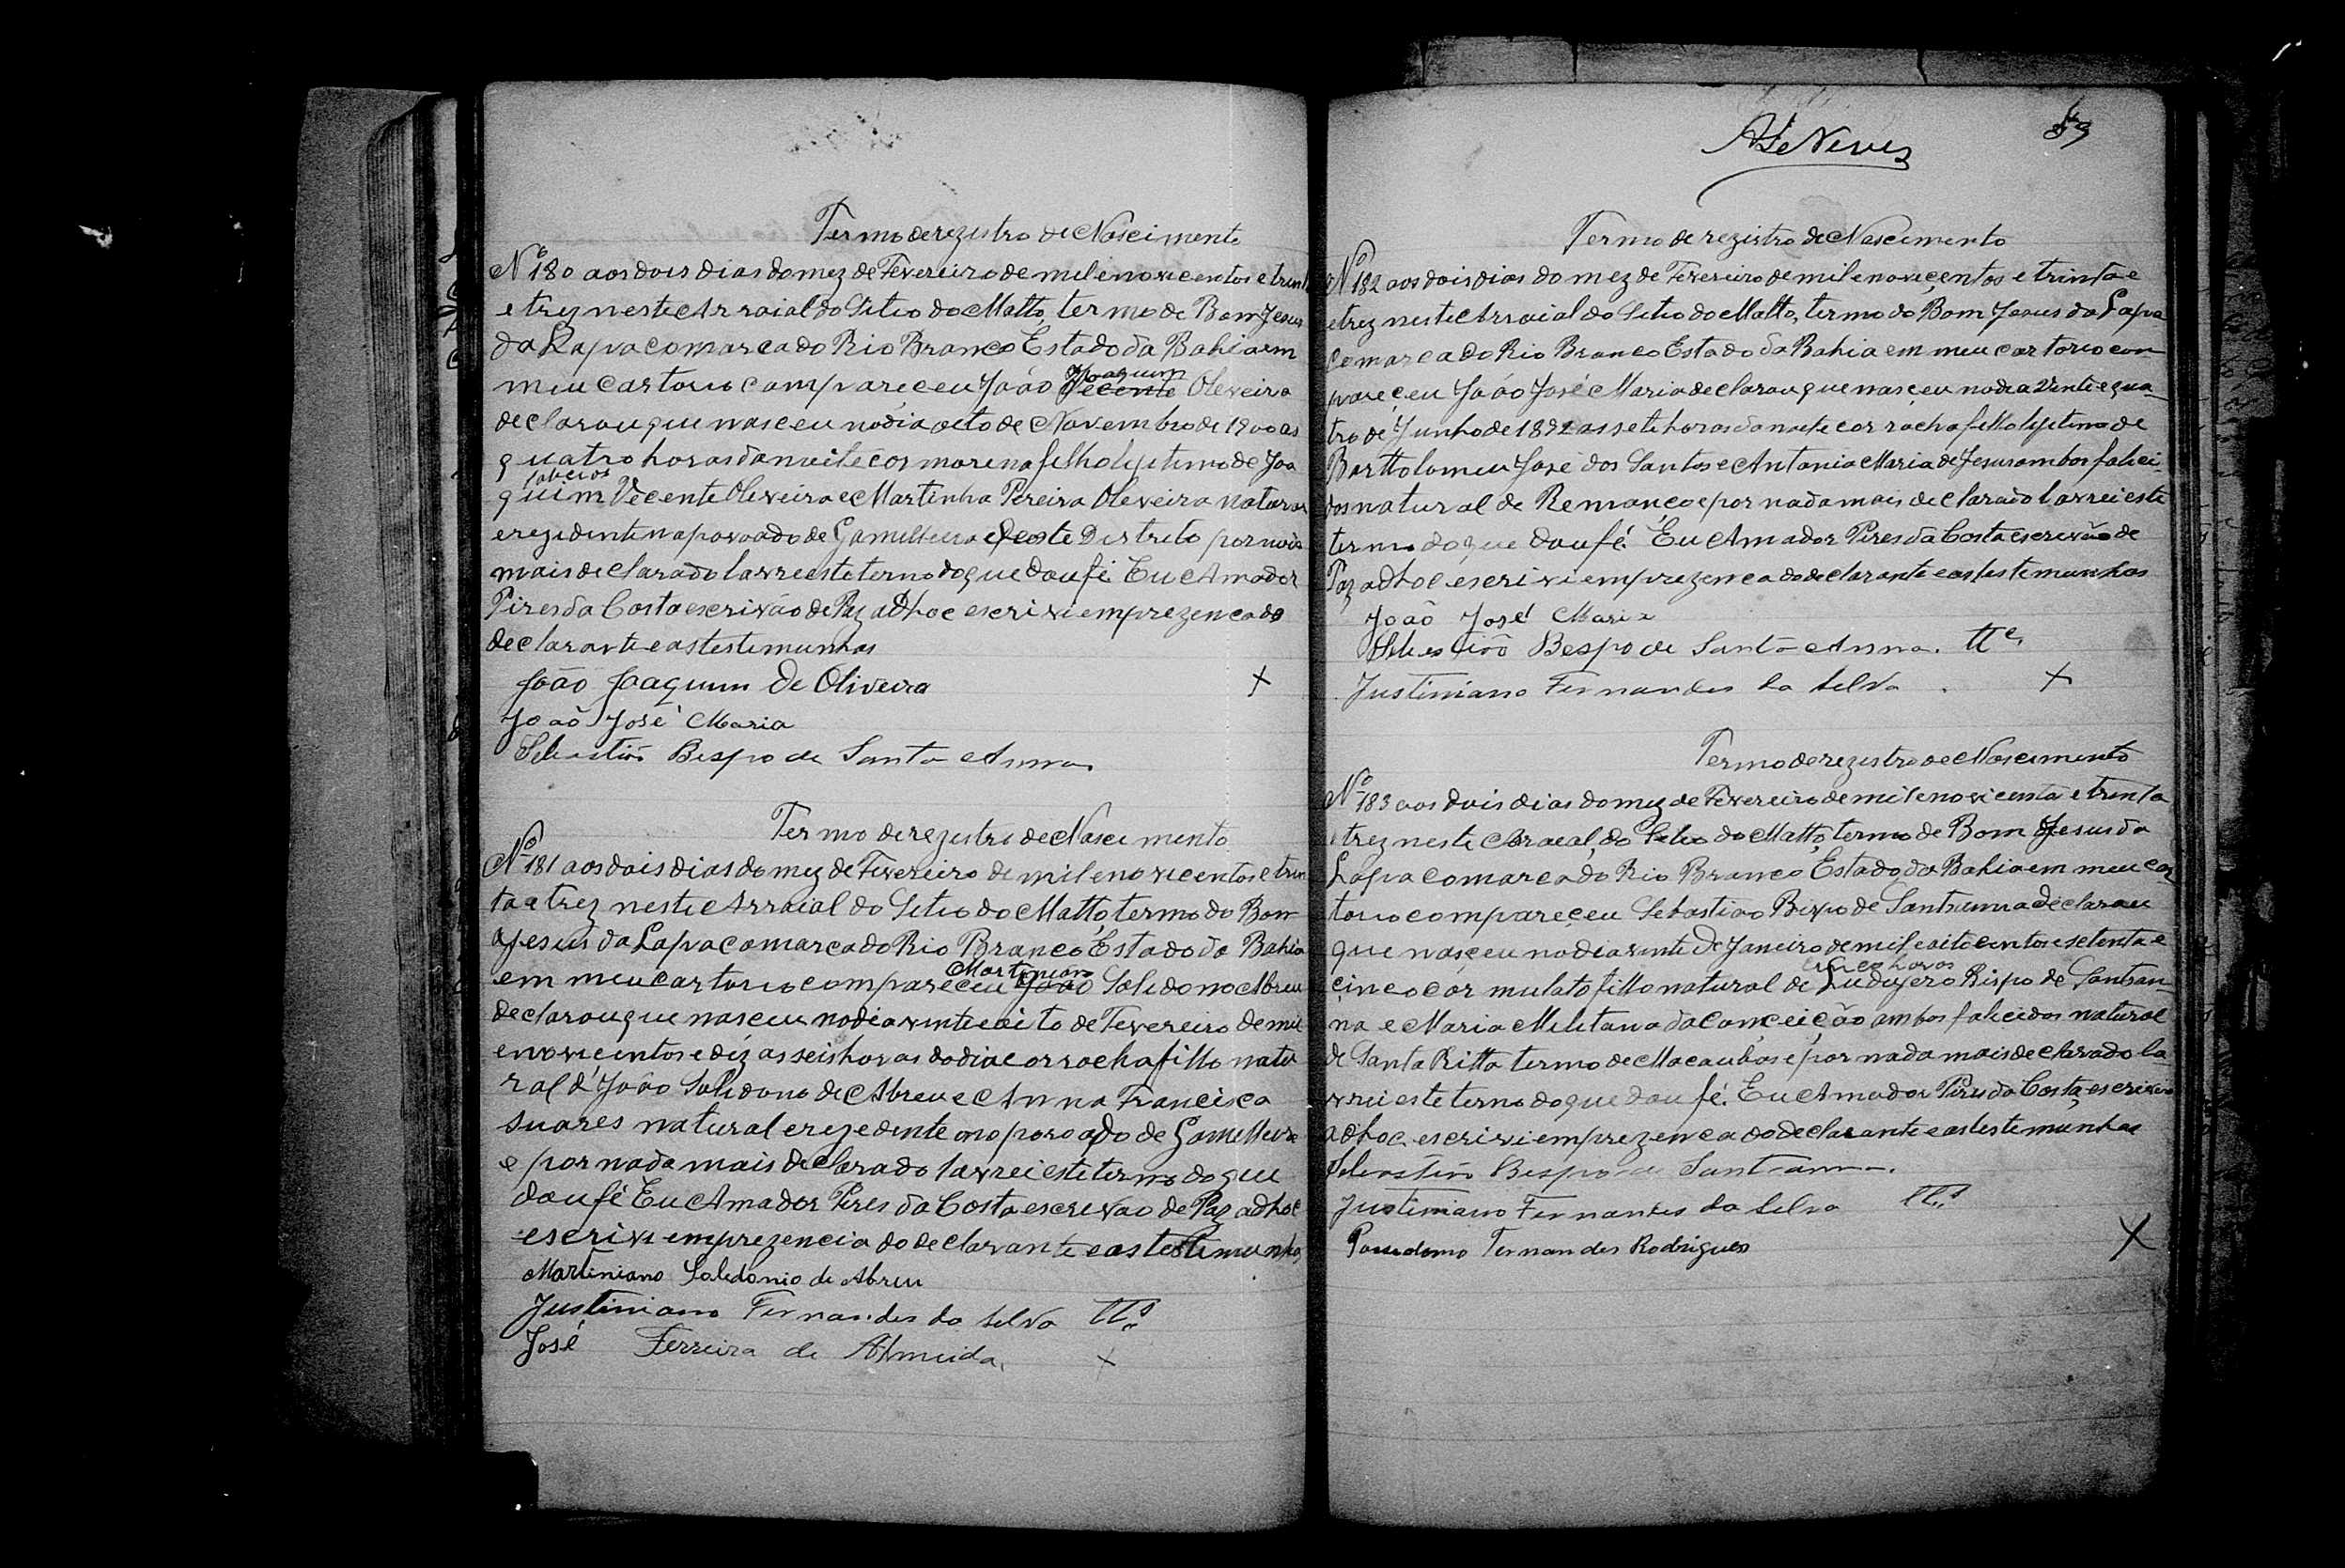 Termo de rezistro de Nascimento
Nº 180 aos dois dias do mez de Fevereiro de mil e novecentos e trint
e trez neste Arraial do Setio do Matto, termo de Bom Jesus
da Lapa comarca do Rio Branco Estado da Bahia em
Joaquim
meu cartorio compareceu João Vecente Oleveira
declarou que nasceu no dia oito de Novembro de 1900 as
quatro horas da noite cor morena felho legetimo de Joa
quim Vecente Oleveira e Martinha Pereira Oleveira natural
e rezidente na povoado de Gamelleira deste Destreto por nada
mais declarado lavrei este termo do que dou fé Eu Amador
Pires da Costa escrivão de Paz adhoc escrivi em prezenca do
declarante e as testemunhas
João Joaquim de Oliveira +
João José Maria
Sebastião Bespo de Santa Anna
Termo de rezestro de Nascimento
Nº 181 aos dois dias do mez de Fevereiro de mil e novecentos e trin
ta e trez neste Arraial do Setio do Matto, termo do Bom
Jesus da Lapa comarca do Rio Branco, Estado da Bahia
Martiniano
em meu cartorio compareceu João Saledono Abreu
declarou que nasceu no dia vinte oito de Fevereiro de mil
e novecentos e déz as seis horas do dia cor rocha filho natu
ral d' João Saledono de Abreu e Anna Francisca
suares natural e rezedente no povoado de Gamelleira
e por nada mais declarado lavrei este termo do que
dou fé Eu Amador Peres da Costa escrevão de Paz adhoc
escrivi em prezencia do declarante e as testemunhas
Martiniano Saledonio de Abreu
Justiniano Fernandes da Selva ttªs
José Ferreira de Almeida +
ASNeves
89
Termo de registro de Nascemento
Nº 182 aos dois dias do mez de Fevereiro de mil e noveçentos e trinta e
e trez neste Arraial do Setio do Matto, termo do Bom Jesus da Lapa
comarca do Rio Branco Estado da Bahia em meu cartorio com
pareçeu João José Maria declarou que nasçeu no dia vente e qua-
tro de Junho de 1892 as sete horas da noite cor rocha felho legetimo de
Barttolomeu José dos Santos e Antonia Maria de Jesus ambos faleci
dos natural de Remanço e por nada mais declarado lavrei este
termo do que dou fé. Eu Amador Peres da Costa escrivão de
Paz adhoc escrivi em prezenca do declarante e as testemunhas
João José Maria
Sebastião Bespo de Santa Anna. tte.
Justiniano Fernandes da Selva +
Termo de rezestro de Nascemento
Nº 183 aos dois dias do mez de Fevereiro de mil e novicenta e trenta
e trez neste Arraeal do Seteo do Matto, termo de Bom Jesus da
Lapa comarca do Rio Branco Estado da Bahia em meu car
torio compareçeu Sebastião Bispo de Santanna declarou
que nasçeu no dia vinte de Janeiro de mil eoito centos e setenta e
cinco horas
çinco cor mulato filho natural de Ludugero Bispo de Santan-
na e Maria Meletana da Conceição ambos falecidos natural
de Santa Ritta termo de Macaubas e por nada mais declarado la
vrei este termo do que dou fé. Eu Amador Pires da Costa, escrivão
adhoc escrivi em prezença do declarante e as testemunhas
Sebastião Bespo de Santanna.
Justiniano Fernandes da Selva tt.ªs
Fernandes Rodrigues X